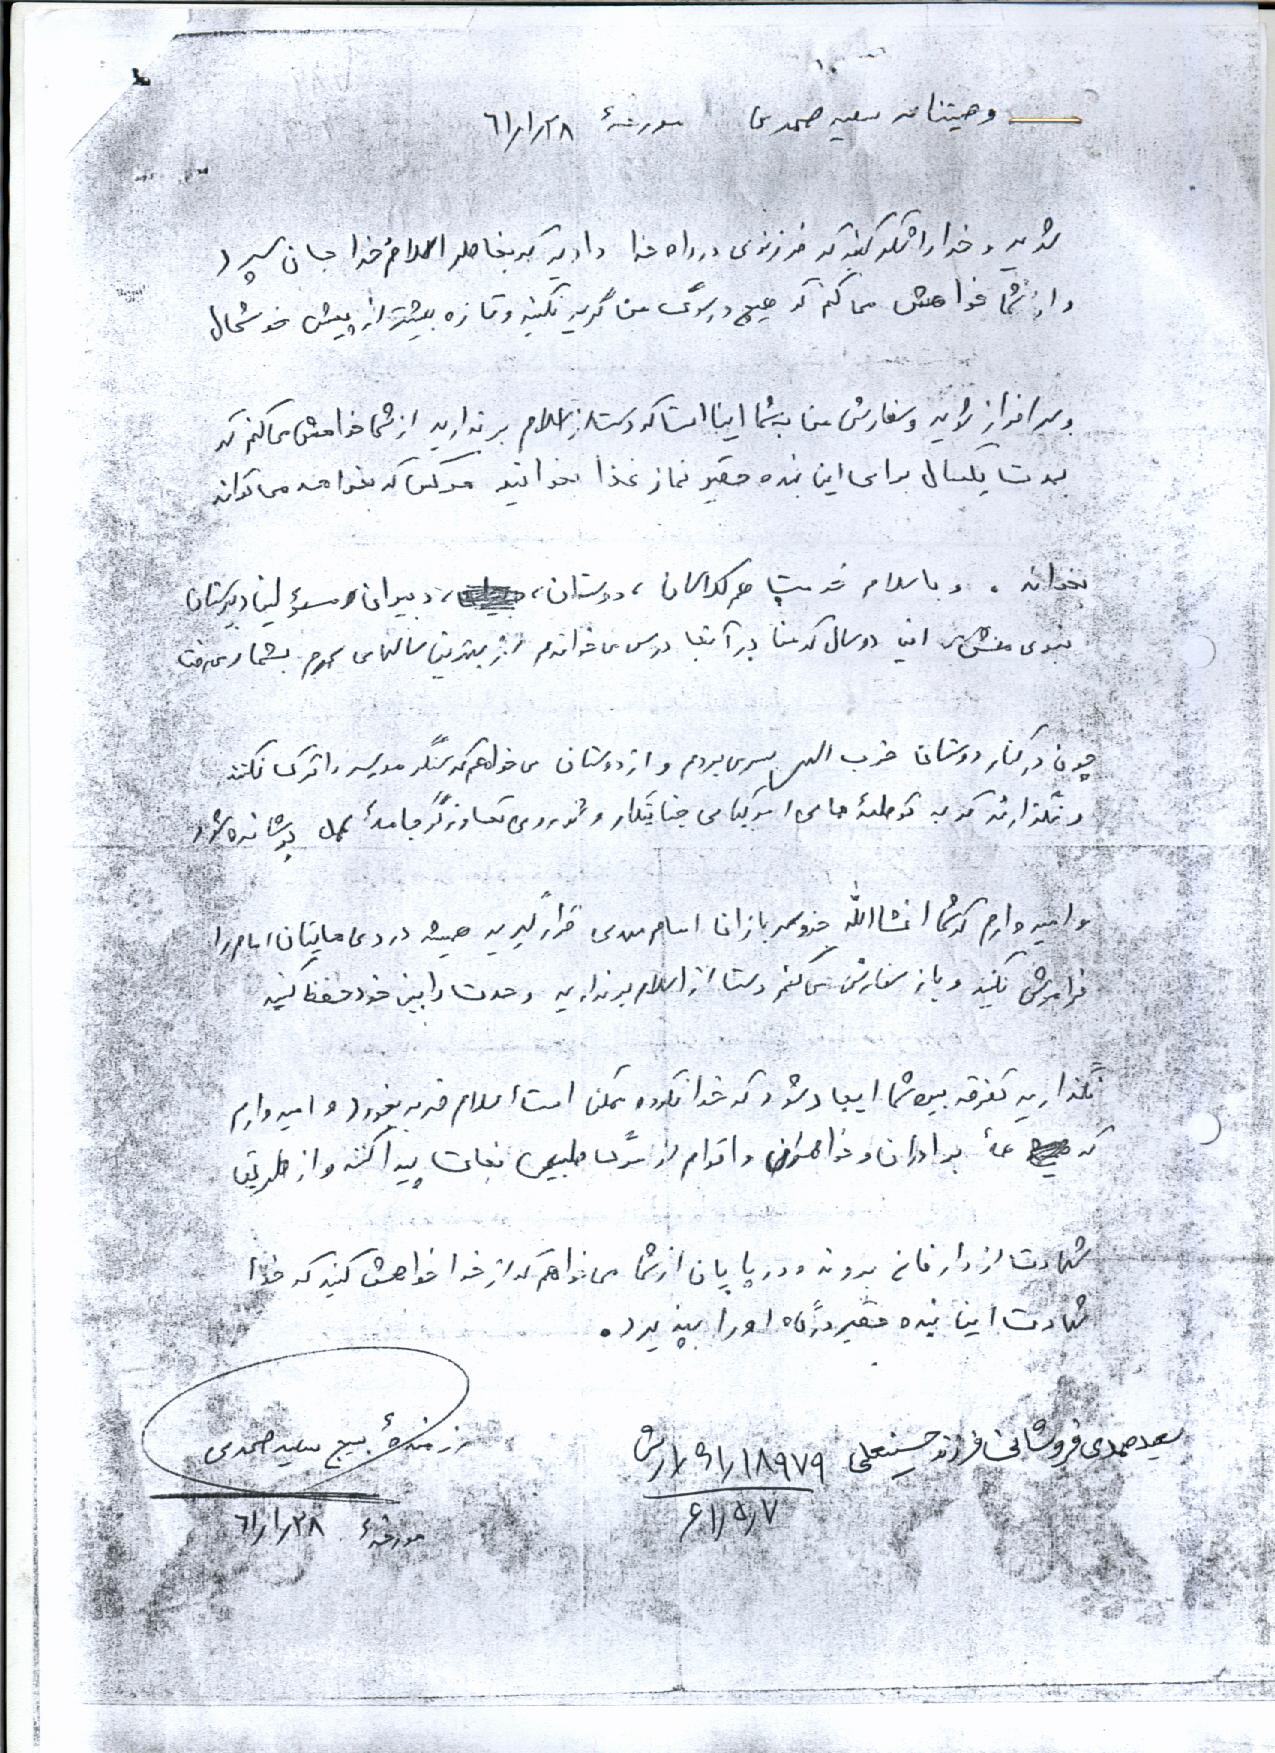 وصیتنامه سعید صمدی مورخهٔ ۶۱/۱/۲۸
شدید و خدا را شکر کنید که فرزندی در راه خدا دادید که بخاطر اسلام خدا جان سپرد
و از شما خواهش می کنم که هیچ در سوگ من گریه نکنید و تازه بیشتر از پیش خوشحال
و سرافراز شوید و سفارش من به شما این است که دست از اسلام برندارید از شما خواهش می کنم که
بمدت یکسال برای این بنده حقیر نماز بخوانید هر کس که بخواهد می تواند
بخواند . و با سلام خدمت همکلاسان ، دوستان ، دبیران و مسؤلین دبیرستان
این دو سال که من در آنجا درس می خواندم از بهترین سالهای عمرم بشمار می رفت
چون در کنار دوستان حزب الهی بسر می بردم و از دوستان می خواهم که سنگر مدرسه را ترک نکنند
و نگذارند که به توطئه های امریکای جنایتکار و شوروی تجاوزگر جامهٔ عمل پوشانده شود
و امیدوارم که شما انشاالله جزو سربازان امام مهدی قرار گیرید همیشه در دعاهایتان امام را
فراموش نکنید و باز سفارش می کنم دست از اسلام برندارید وحدت را بین خود حفظ کنید
نگذارید تفرقه بین شما ایجاد شود که خدا نکرده ممکن است اسلام ضربه بخورد و امیدوارم
که برادران و خواهران و اقوام از مرگ طبیعی نجات پیدا کنند و از طریق
شهادت از دار فانی بروند و در پایان از شما می خواهم که از خدا خواهش کنید که خدا
شهادت این بنده حقیر درگاه او را بپذیرد .
سعید صمدی فروشانی فرزند حسینعلی
۶۱/۵/۷
رزمندهٔ بسیج سعید صمدی
مورخهٔ ۶۱/۱/۲۸